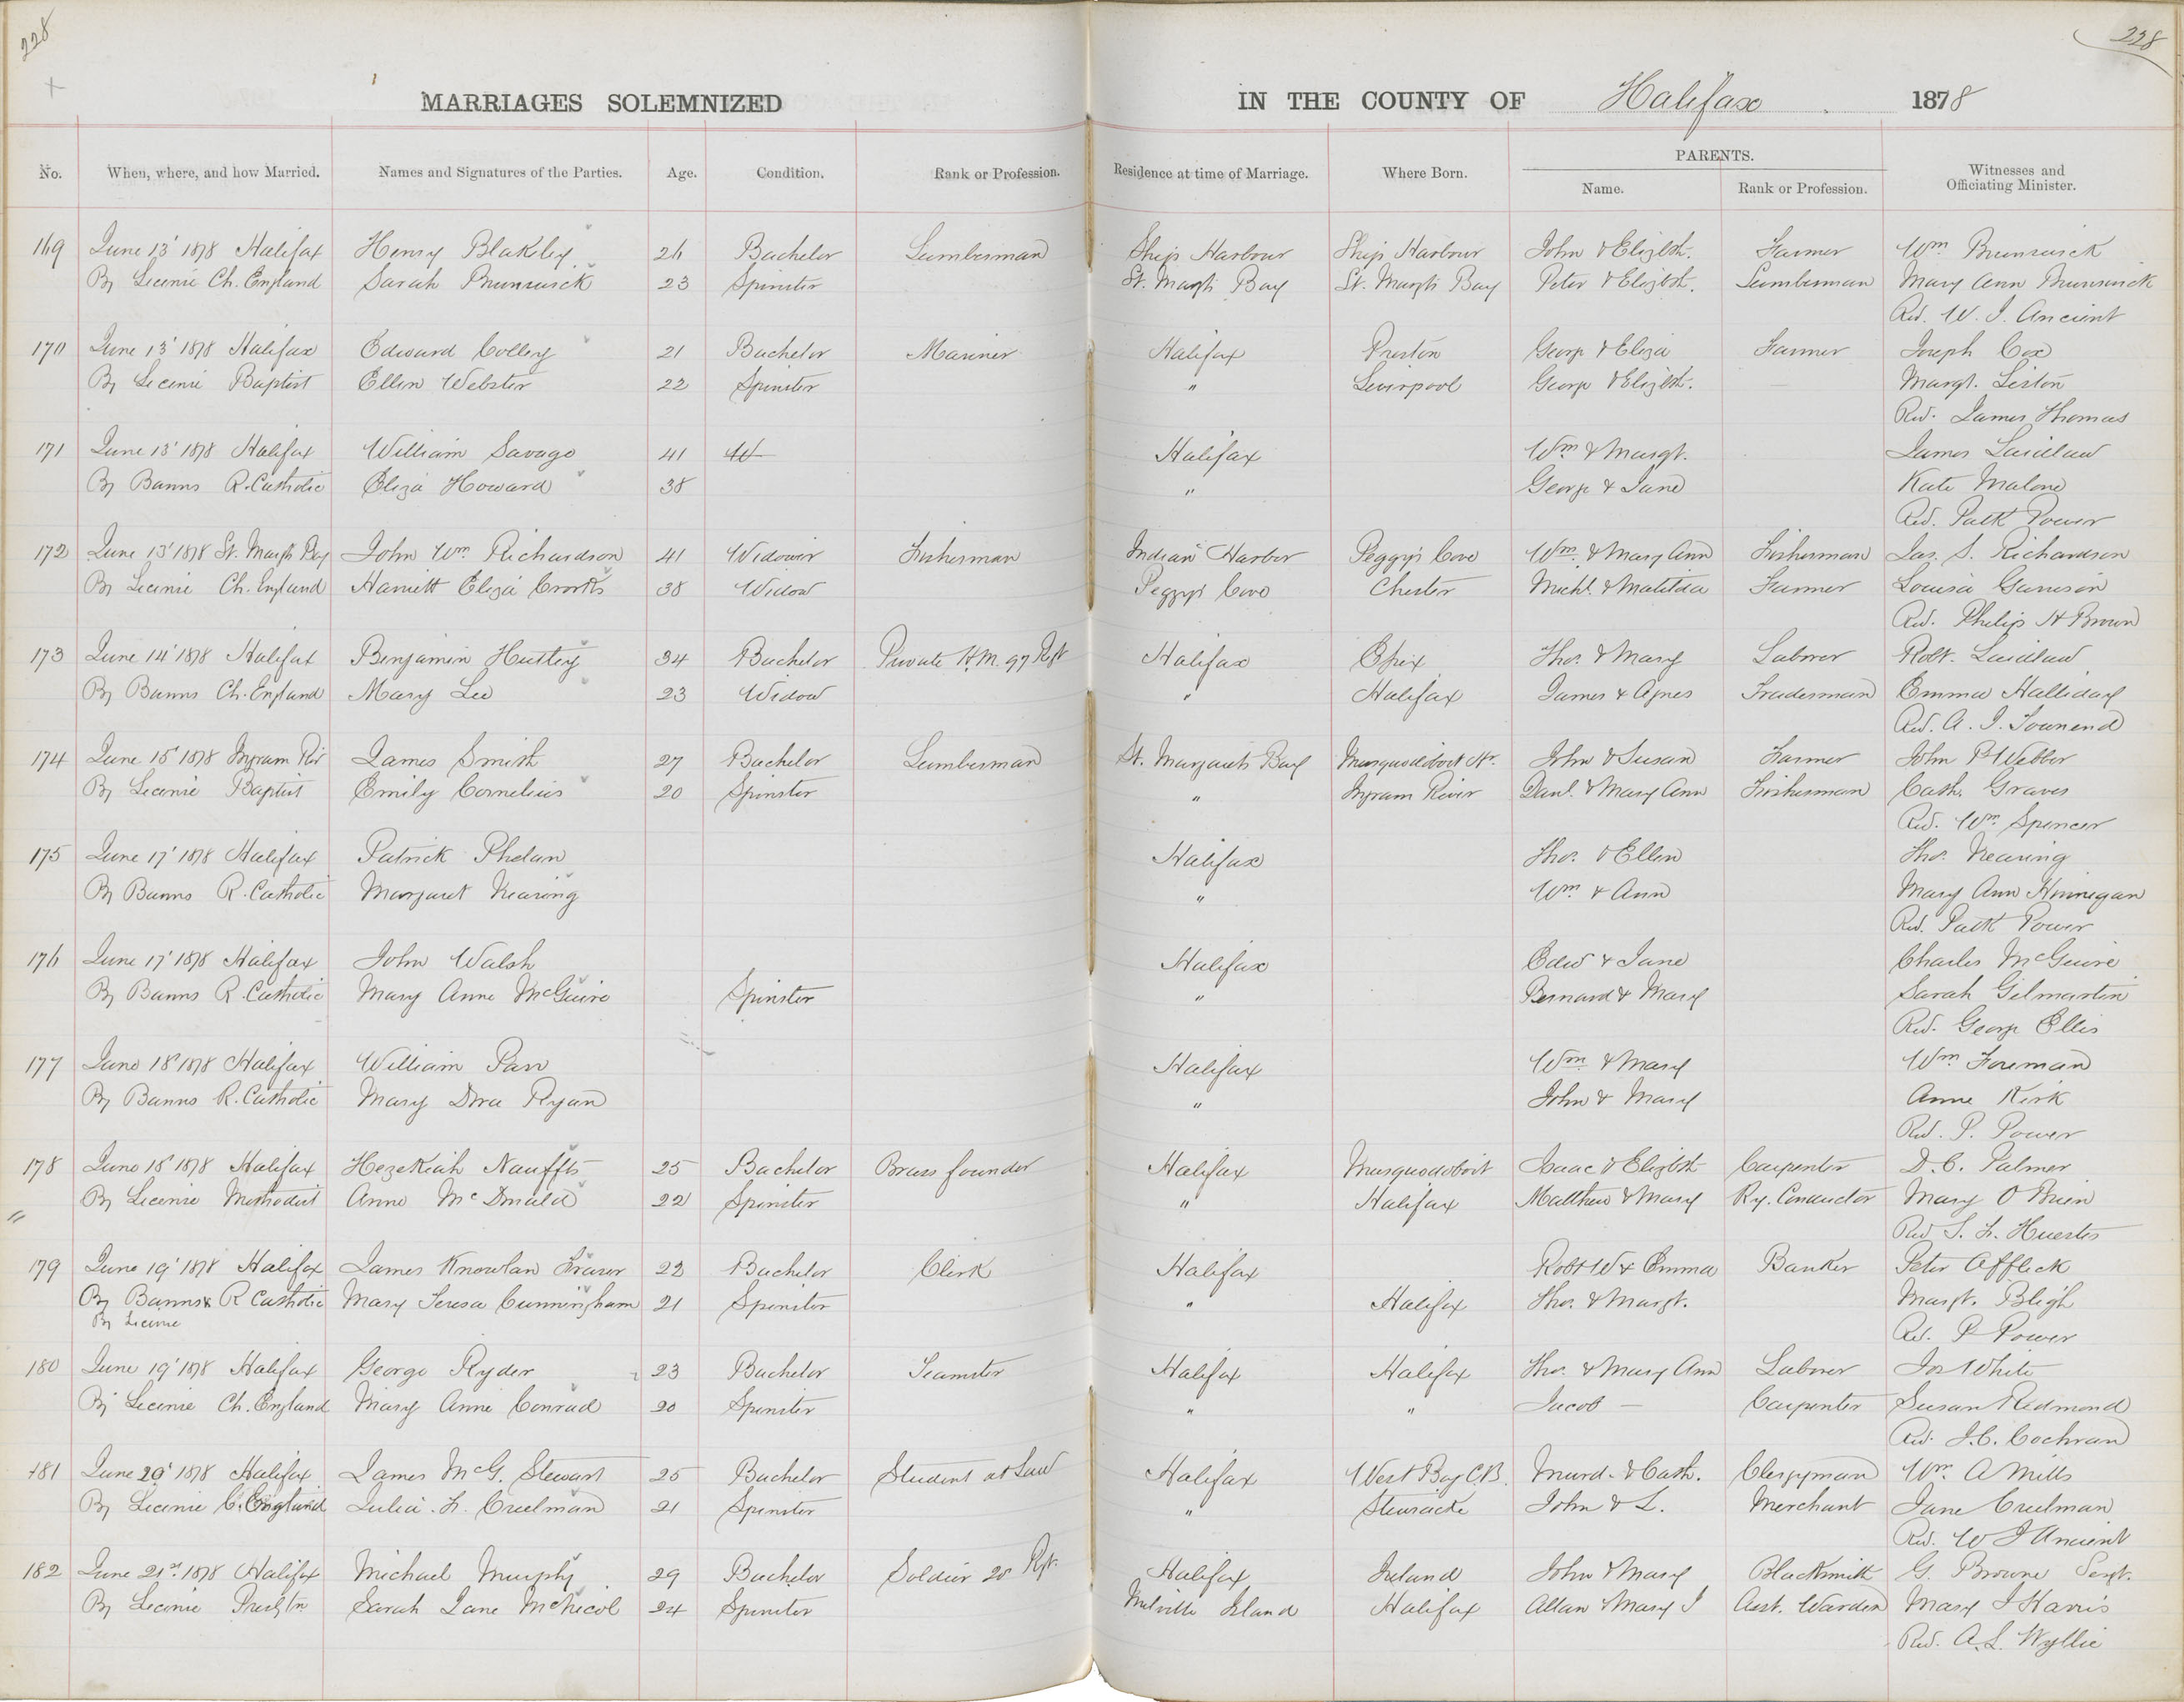 228
228
MARRIAGES SOLEMNIZED IN THE COUNTY OF Halifax 1878
No. When, where, and how Married. Names and Signatures of the Parties. Age. Condition. Rank or Profession. Residence at time of Marriage. Where Born. PARENTS. Name. Rank or Profession. Witnesses and Officiating Minister.
169 June 13' 1878 Halifax Henry Blakley 26 Bachelor Lumberman Ship Harbour Ship Harbour John & Elizbth. Farmer Wm Brunswick
By License Ch. England Sarah Brunswick 23 Spinster St. Margts Bay St. Margts Bay Peter & Elizbth. Lumberman Mary Ann Brunswick
Rev. W. J. Ancient
170 June 13' 1878 Halifax Edward Colley 21 Bachelor Mariner Halifax Preston George & Eliza Farmer Joseph Cox
By License Baptist Ellen Webster 22 Spinster " Liverpool George & Elizbth. Margt. Liston
Rev. James Thomas
171 June 13' 1878 Halifax William Savage 41 W Halifax Wm & Margt. James Laidlaw
By Banns R. Catholic Eliza Howard 38 " George & Jane Kate Malone
Rev. Patk Power
172 June 13' 1878 St. Margts Bay John Wm Richardson 41 Widower Fisherman Indian Harbor Peggy's Cove Wm. & Mary Ann Fisherman Jas. S. Richardson
By License Ch. England Harriett Eliza Crooks 38 Widow Peggy's Cove Chester Michl. & Matilda Farmer Louisa Garrison
Rev. Philip H Brown
173 June 14' 1878 Halifax Benjamin Hutley 34 Bachelor Private H.M. 97 Rgt Halifax Thos. & Mary Laborer Robt. Laidlaw
By Banns Ch. England Mary Lee 23 Widow " Halifax James & Agnes Tradesman Emma Halliday
Rev. A. J. Townend
174 June 15' 1878 Ingram Rivr James Smith 27 Bachelor Lumberman St. Margarets Bay Musquodoboit Hr. John & Susan Farmer John P Webber
By License Baptist Emily Cornelius 20 Spinster " Ingram River Danl. & Mary Ann Fisherman Cath. Graves
Rev. Wm. Spencer
175 June 17' 1878 Halifax Patrick Phelan Halifax Thos. & Ellen Thos. Nearing
By Banns R. Catholic Margaret Nearing " Wm. & Ann Mary Ann Hinnegan
Rev. Patk Power
176 June 17' 1878 Halifax John Walsh Halifax Edwd & Jane Charles McGuire
By Banns R. Catholic Mary Anne McGuire Spinster " Bernard & Mary Sarah Gilmartin
Rev. George Ellis
177 June 18' 1878 Halifax William Parr Halifax Wm & Mary Wm Foreman
By Banns R. Catholic Mary Dora Ryan " John & Mary Anne Kirk
Rev. P. Power
178 June 18' 1878 Halifax Hezekiah Nauffts 25 Bachelor Brass founder Halifax Musquodoboit Isaac & Elizbth Carpenter D. C. Palmer
By License Methodist Anne McDonald 22 Spinster " Halifax Matthew & Mary Ry. Conductor Mary O Brien
Rev S. F. Huestis
179 June 19' 1878 Halifax James Knowlan Fraser 22 Bachelor Clerk Halifax Robt W & Emma Banker Peter Affleck
By Banns & R Catholic Mary Teresa Cunningham 21 Spinster " Halifax Thos. & Margt. Margt. Bligh
By License
Rev. P Power
180 June 19' 1878 Halifax George Ryder 23 Bachelor Teamster Halifax Halifax Thos. & Mary Ann Laborer Jos White
By License Ch. England Mary Anne Conrad 20 Spinster " " Jacob — Carpenter Susan Redmond
Rev. J. C. Cochran
181 June 20' 1878 Halifax James McG. Stewart 25 Bachelor Student at Law Halifax West Bay C.B. Murd. & Cath. Clergyman Wm. A Mills
By License C. England Julia. F. Creelman 21 Spinster " Stewiacke John & L. Merchant Jane Creelman
Rev. W J Ancient
182 June 21st 1878 Halifax Michael Murphy 29 Bachelor Soldier 20 Rgt. Halifax Ireland John & Mary Blacksmith G. Browne Sergt.
By License Presbtn Sarah Jane McNicol 24 Spinster Melville Island Halifax Allan & Mary J Asst. Warden Mary J Harris
Rev. A. L. Wyllie